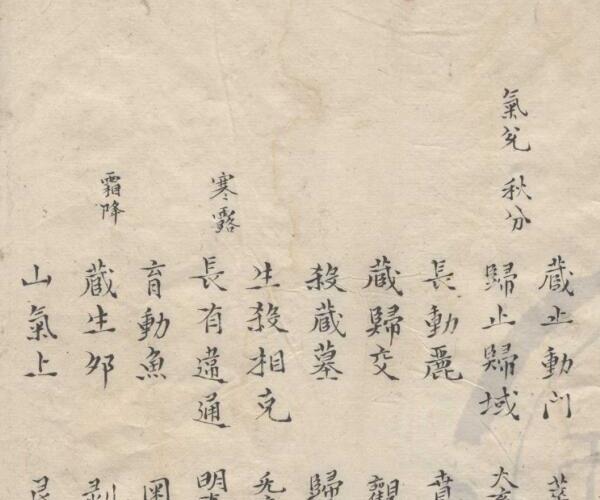 藏止動門
氣兌 秋分
歸止歸域
長動麗 賁
藏歸交 觀
殺藏墓 歸
生殺相克
寒露
長有違通 明
育動魚
霜降
藏生夘 剝
山氣上